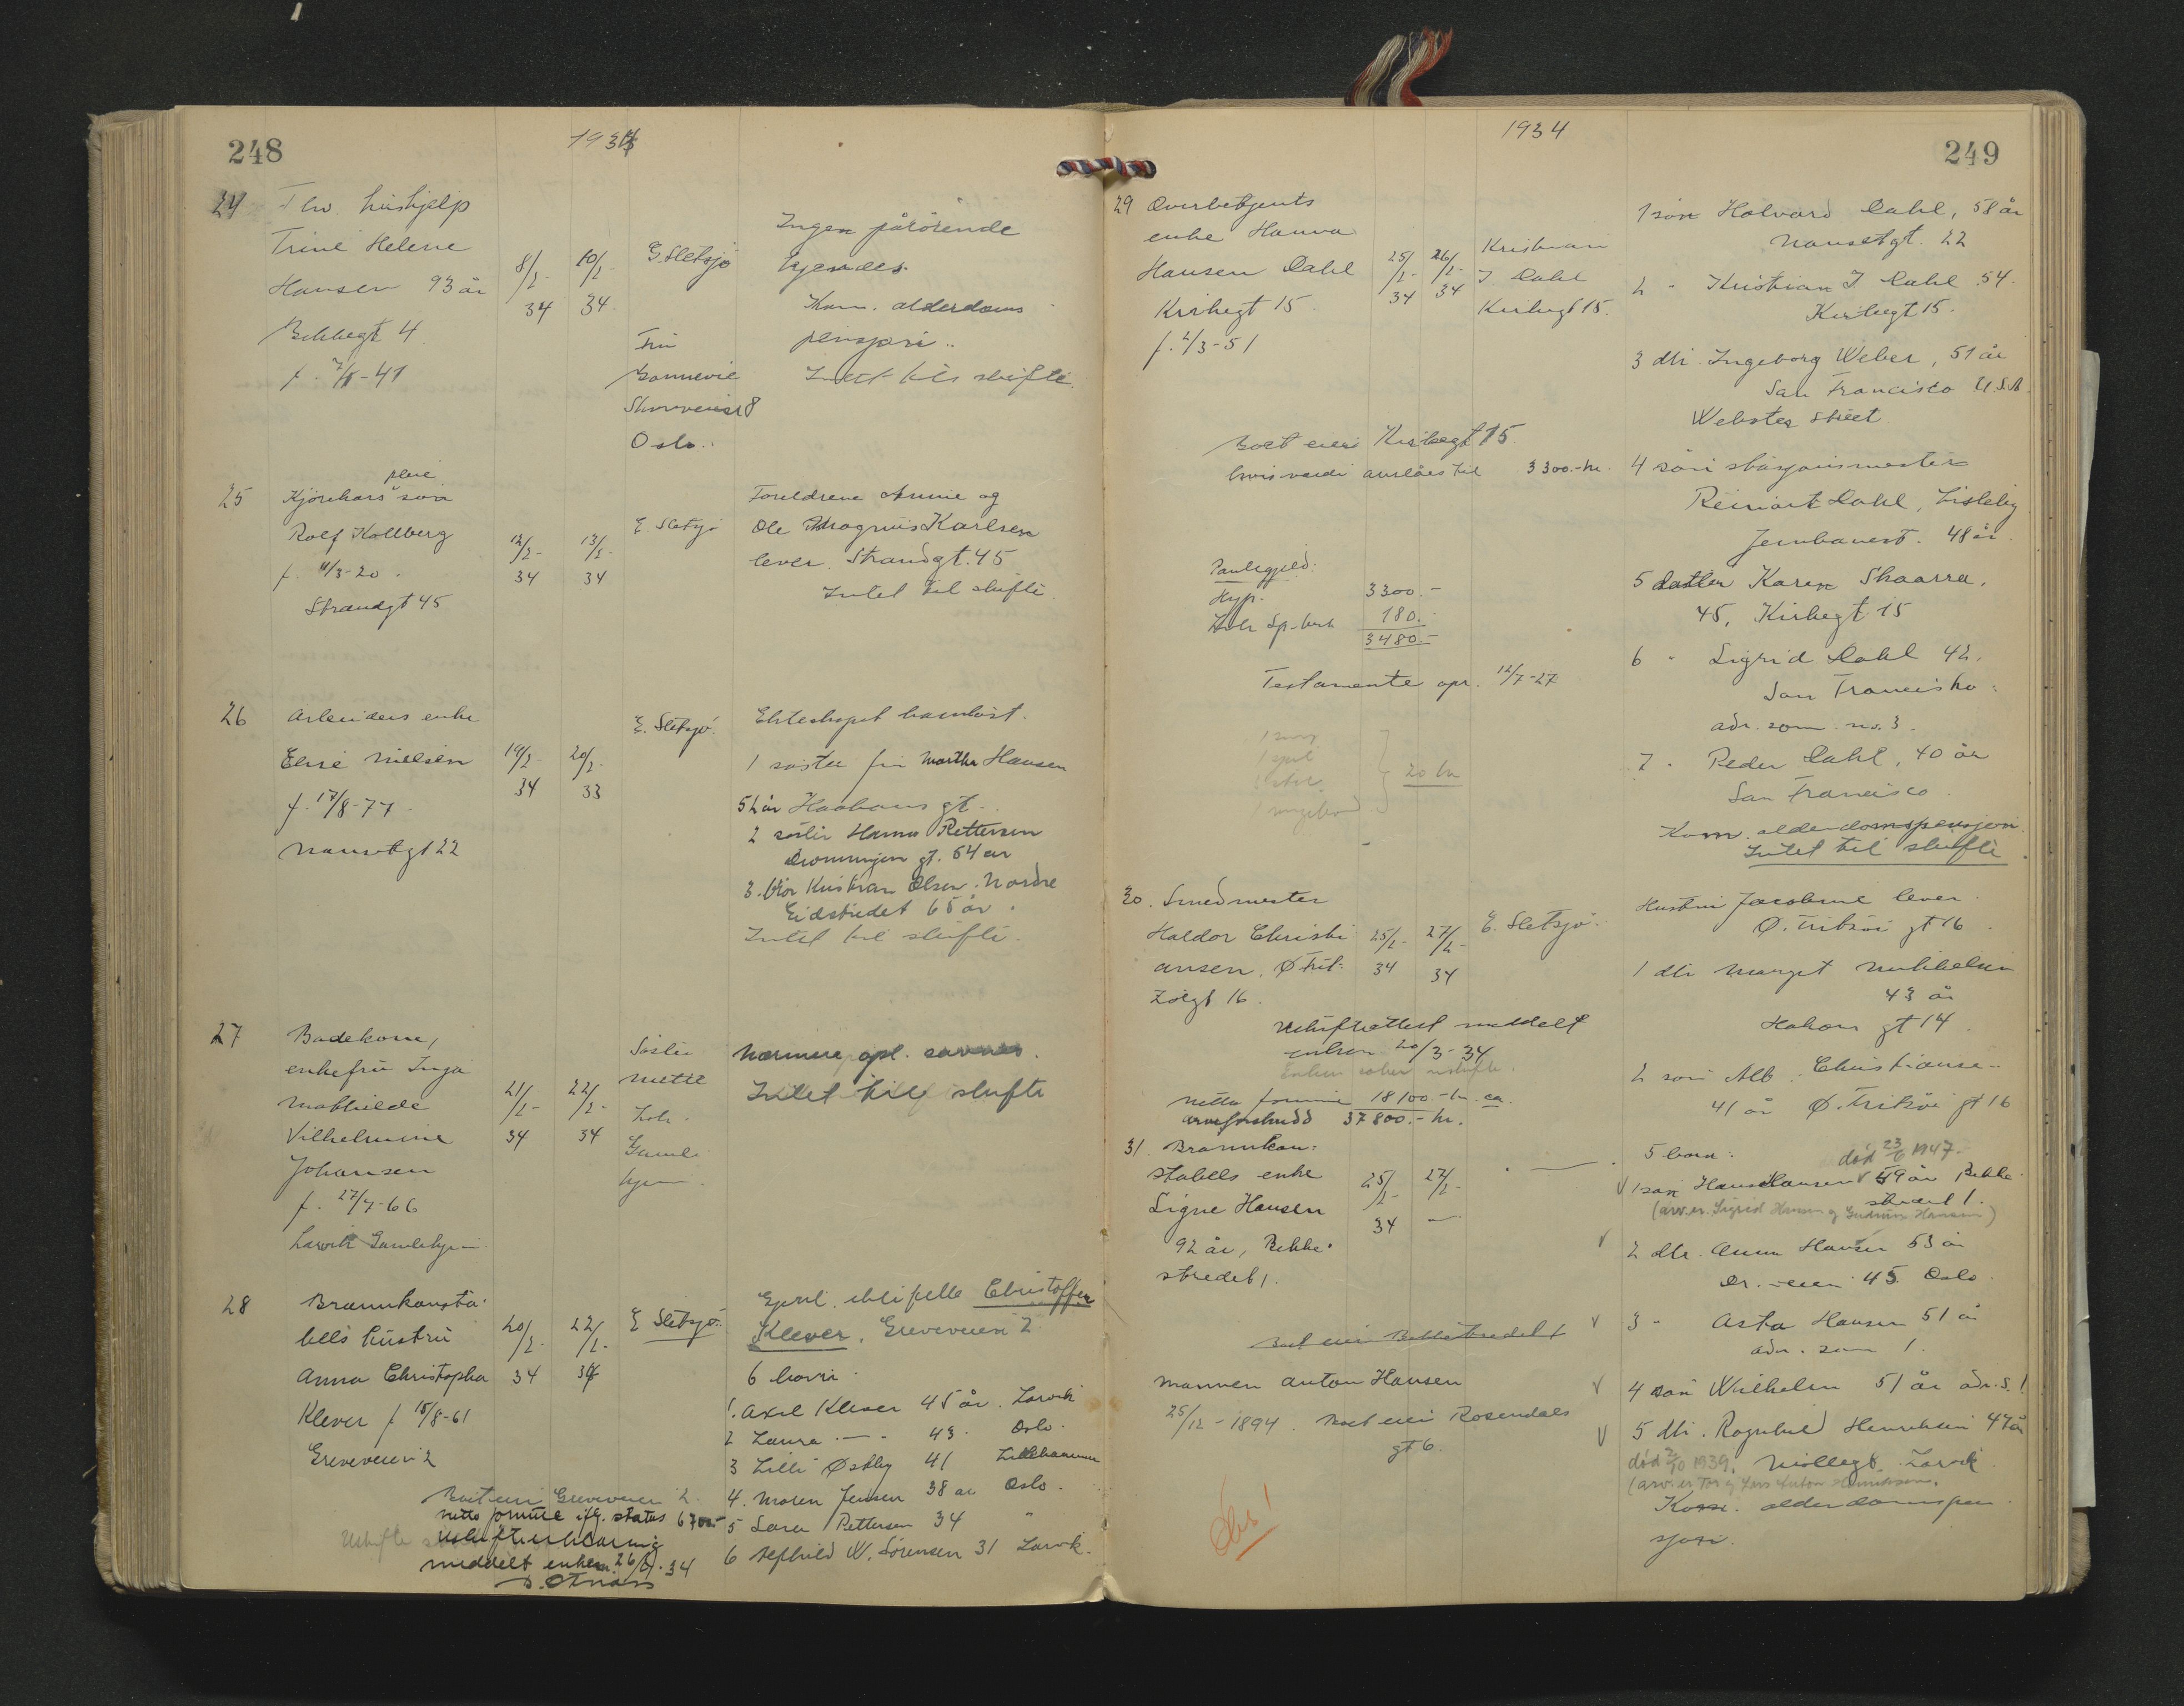 248
1934
24 Fhv. hushjelp
Trine Helene
Hansen 93 år
Bekkegt 4
8/2- 34
10/2- 34
E. Sletsjø
Fru
Oslo.
Ingen pårörende
kjendes.
Kom. alderdoms
pensjon..
Intet til skifte.
25 Kjörekars pleie sön
Rolf Kollberg
f. 11/3-20.
Strandgt 45
12/2- 34
13/2- 34
E. Sletsjø
Foreldrene Annie og
Ole Magnus Karlsen
lever. Strandgt. 45
Intet til skifte.
26 Arbeiders enke
Elise Nielsen
f. 17/8-77.
Nansetgt 22
19/2- 34
20/2- 33
E. Sletsjø.
Ekteskapet barnlöst.
1 söster fru Martha Hansen
52 år Haakons gt.
2 söster Hanna Pettersen
Dronningen gt. 64 år
3. bror Kristian Olsen. Nordre
Eidstredet 65 år.
Intet til skifte.
27 Badekone,
enkefru Inga
Mathilde
Vilhelmine
Johansen
f. 27/7-66
Larvik Gamlehjem
21/2- 34
22/2- 34
Söster
Mette
Gamle
hjem.
Nærmere opl. savnes.
Intet till skifte
28 Brannkonsta-
bels hustru
Anna Christopha
Klever f 15/8-61
Greveveien 2
20/2- 34
22/2- 34
E Sletsjø.
Gjenl. ektefelle Christoffer
Klever, Greveveien 2.
6 barn.
1. Axel Klever 45 år. Larvik
2 Laura -"- 43. Oslo.
3 Lilli Østby 41 Lillehammer
4. Maren Jensen 38 år Oslo.
5 Sara Pettersen 34 "
6 Alfhild W. Sörensen 31 Larvik.
Boet eier Greveveien 2.
netto formue iflg. status 6700.-
Uskifteerklæring
meddelt enkem. 26/4. 34
249
1934
29 Overbetjents
enke Hanna
Hansen Dahl
Kirkegt 15.
f. 2/3-51
25/2- 34
26/2- 34
Kristian
J Dahl
Kirkegt 15.
Boet eier Kirkegt 15
hvis verdi anslåes til 3300.- kr.
Pantegjeld:
Hyp. 3300.-
Larv. Sp-bank 180.-
3480.-
Testamente opr. 12/7-27
20 kr
1 sön Halvard Dahl, 58 år
Nansetgt. 22
2 " Kristian J Dahl 54.
Kirkegt 15.
3 dtr. Ingeborg Weber, 51 år
San Francisco U.S.A.
Webster Street
4 sön stasjonsmester
Reinart Dahl, Liseleby
Jernbanest. 48 år.
5 datter Karen Skaarra,
45, Kirkegt. 15
6 " Sigrid Dahl 42,
San Francisko.
adr. som no. 3.
7 " Peder Dahl, 40 år
San Francisco.
Kom. alderdomspensjon.
Intet til skifte.
30. Smedmester
Haldor Christi
ansen, Ø Frit-
zöegt 16.
25/2- 34
27/2- 34
E. Sletsjø.
Uskifteattest meddelt
enken 20/3-34
netto formue 18100.- kr. ca.
arveforskudd 37800.- kr.
Hustru Jacobine lever.
Ø. Fritzöe gt 16.
1 dtr Margit Mikkelsen
43 år
Hakon gt 14.
2 sön Alb. Christianse-
41 år Ø. Fritzöe gt 16
31. Brannkon-
stabels enke
Signe Hansen
92 år, Bekke-
stredet 1.
25/2- 34
27/2-
Boet eier Bekkestredet 1
Mannen Anton Hansen
25/12-1894. Boet eier Rosendals
gt 6.
Obs!
5 barn:
död 23/6 1947.
1 sön Hans Hansen 59 år Bekke-
stredet 1.
(arv. er. Sigrid Hansen og Gudrun Hansen)
2 dtr. Anna Hansen 53 år
Dr. -eien 45. Oslo.
3 " Asta Hansen 51 år
adr. som 1.
4 sön Wilhelm 51 år adr. s. 1
5 dtr. Ragnhild Henriksen 47 år
död 2/10 1939. Möllegt. Larvik
Kom. alderdomspen
sjon.